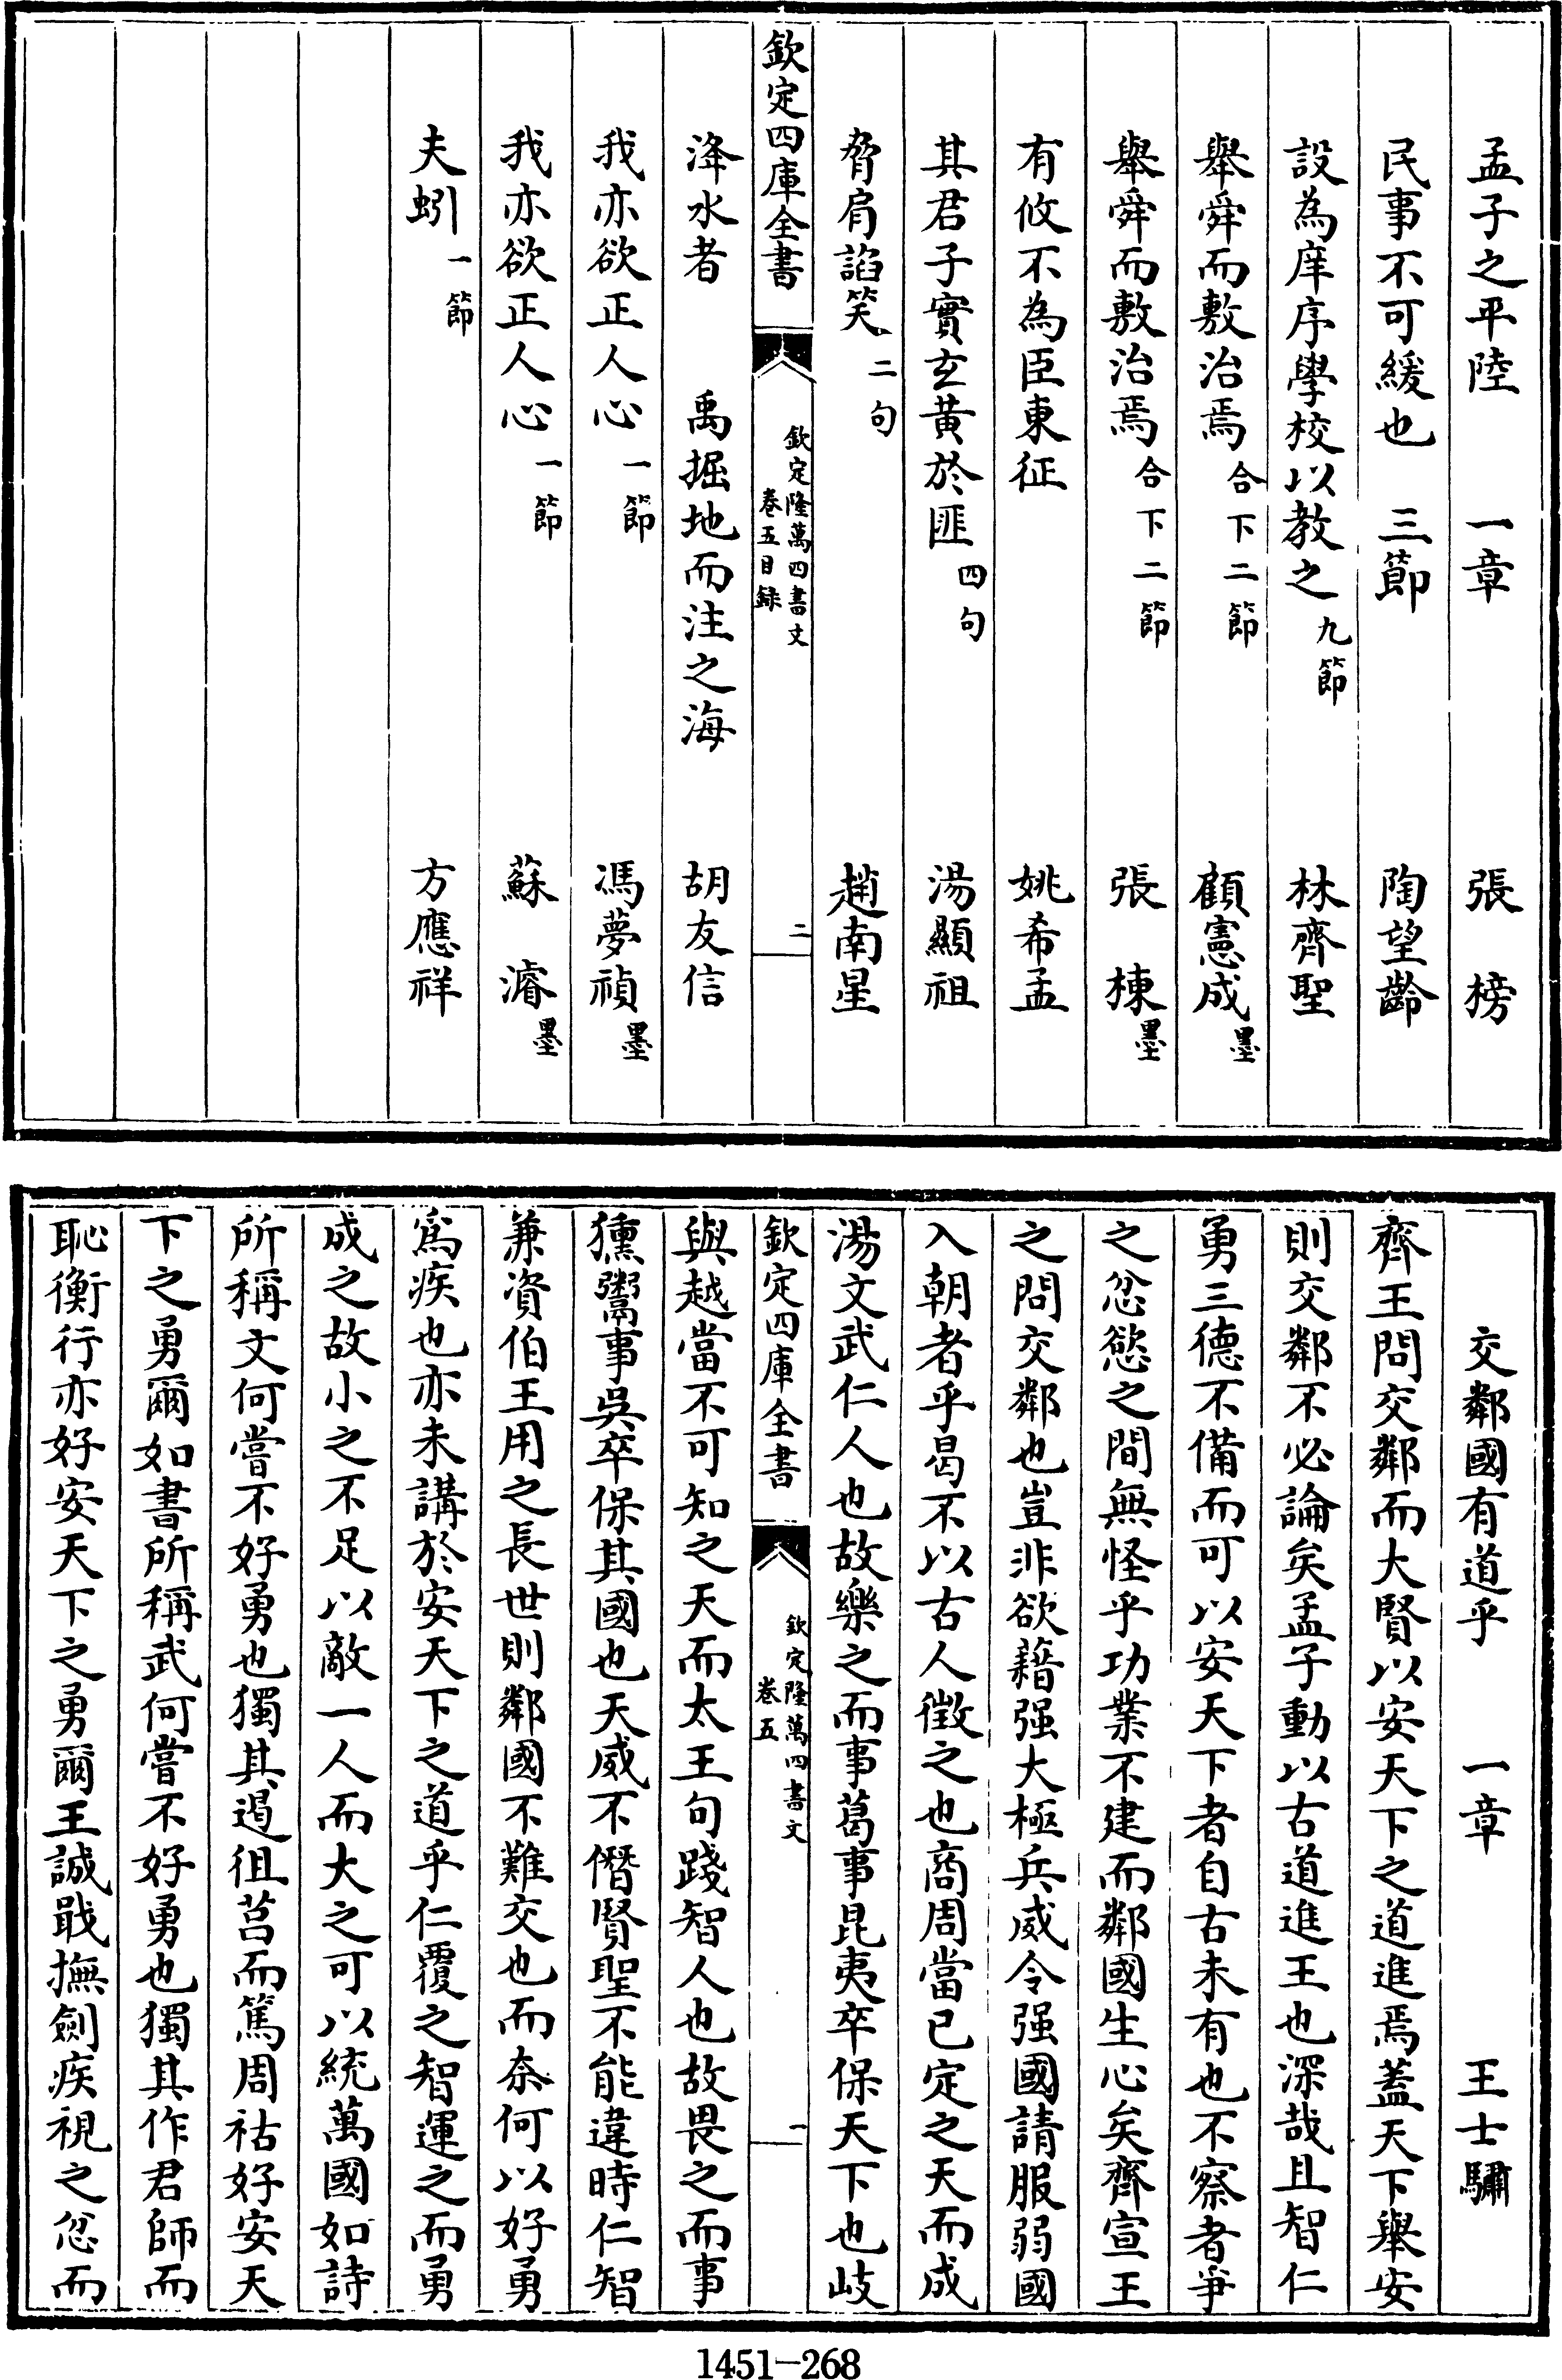 孟子之平陸　一章　張　榜
民事不可緩也　三節　陶望齡
設為庠序學校以教之九節　林齊聖
舉舜而敷治焉合下二節　顧憲成墨
舉舜而敷治焉合下二節　張　棟墨
有攸不為臣東征　姚希孟
其君子實玄黃於匪四句　湯顯祖
脅肩諂笑二句　趙南星
欽定四庫全書　欽定隆萬四書文卷五目録　二
洚水者　禹掘地而注之海　胡友信
我亦欲正人心一節　馮夢禎墨
我亦欲正人心一節　蘇　濬墨
夫蚓一節　方應祥
交鄰國有道乎　一章　王士驌
齊王問交鄰而大賢以安天下之道進焉蓋天下舉安
則交鄰不必論矣孟子動以古道進王也深哉且智仁
勇三德不備而可以安天下者自古未有也不察者爭
之忿慾之間無怪乎功業不建而鄰國生心矣齊宣王
之問交鄰也豈非欲藉强大極兵威令强國請服弱國
入朝者乎曷不以古人徵之也商周當已定之天而成
湯文武仁人也故樂之而事葛事昆夷卒保天下也岐
欽定四庫全書　欽定隆萬四書文卷五　一
與越當不可知之天而太王句踐智人也故畏之而事
獯鬻事吳卒保其國也天威不僭賢聖不能違時仁智
兼資伯王用之長世則鄰國不難交也而奈何以好勇
為疾也亦未講於安天下之道乎仁覆之智運之而勇
成之故小之不足以敵一人而大之可以統萬國如詩
所稱文何嘗不好勇也獨其遏徂莒而篤周祜好安天
下之勇爾如書所稱武何嘗不好勇也獨其作君師而
恥衡行亦好安天下之勇爾王誠戢撫劍疾視之忿而
1451-268